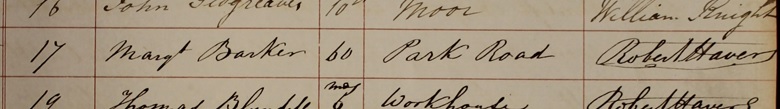 16 John Sidgreaves 10 Moor William Knight
17 Margt Barker 60 Park Road Robert Havers
19 Thomas Blundell 6 mos Workhouse Robert Havers